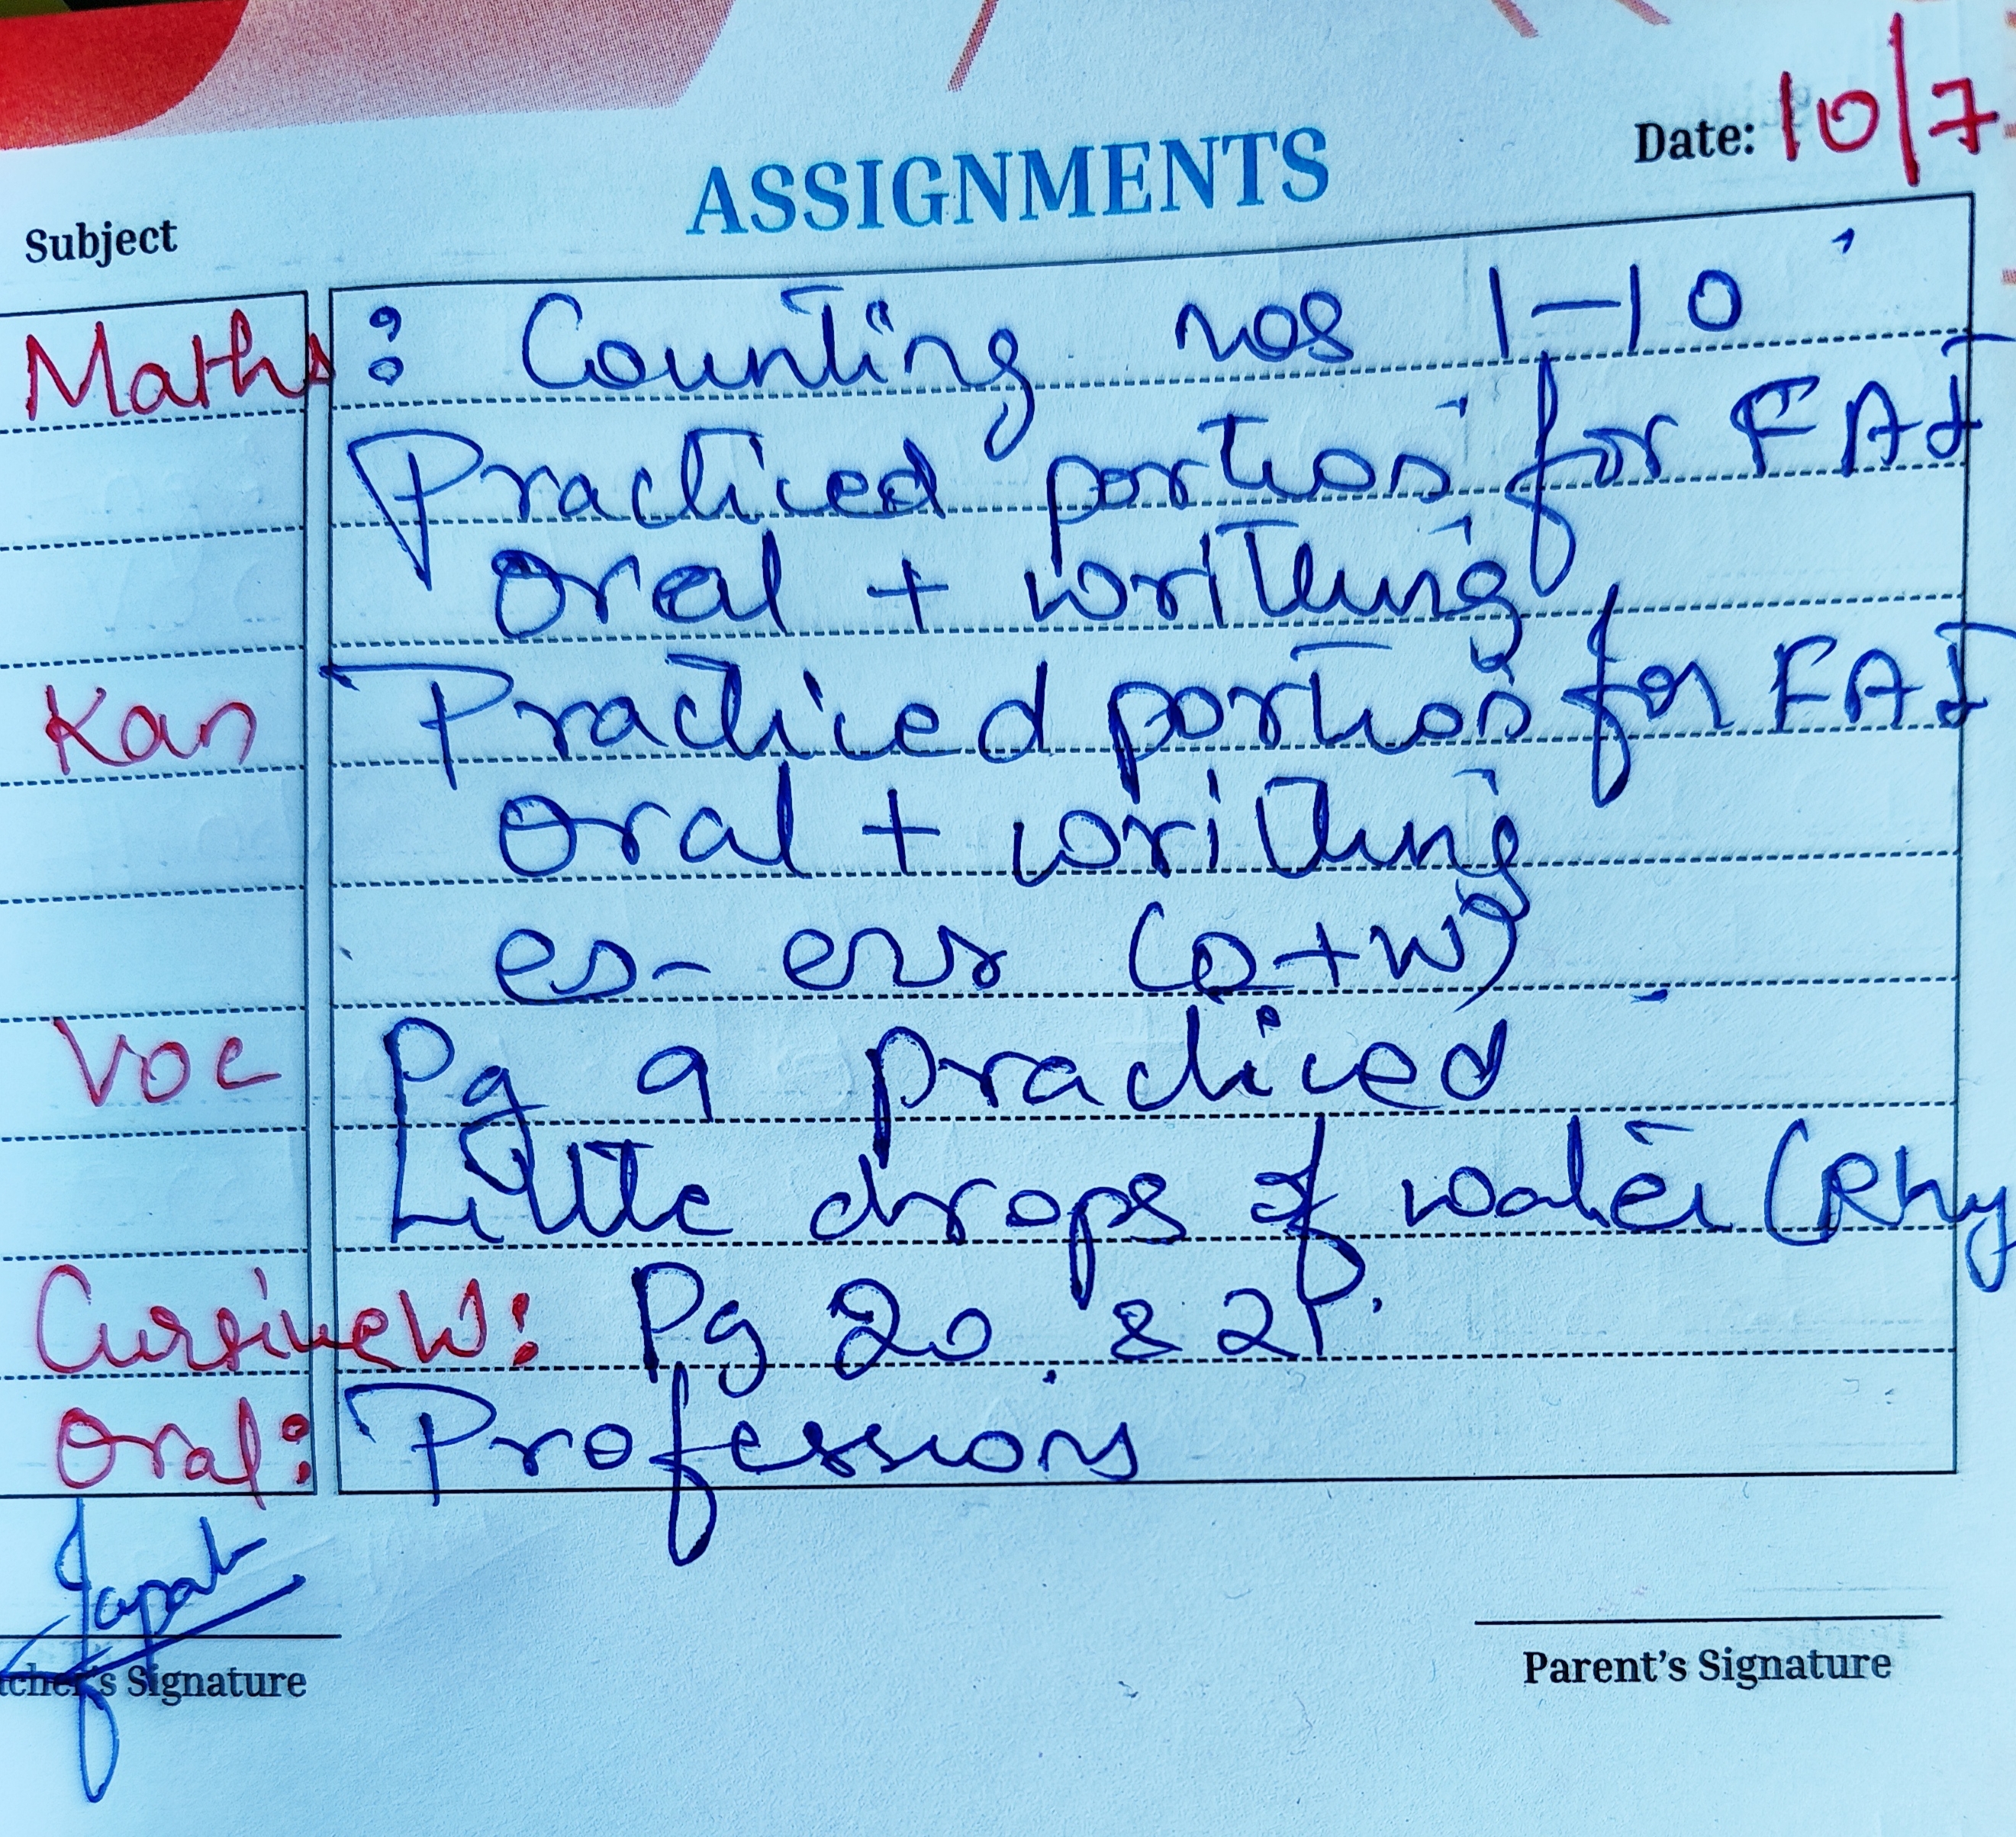 ASSIGNMENTS
Date: 10/7
Subject
Maths : Counting nos 1-10
Practiced portios for FA I
oral + writting
Kan Practiced portios for FA I
oral + writting
(o+w)
Voc Pg 9 practiced
Little drops of water (Rhy
Cursive W: Pg 20 & 21.
Oral: Professions
cher's Signature
Parent's Signature